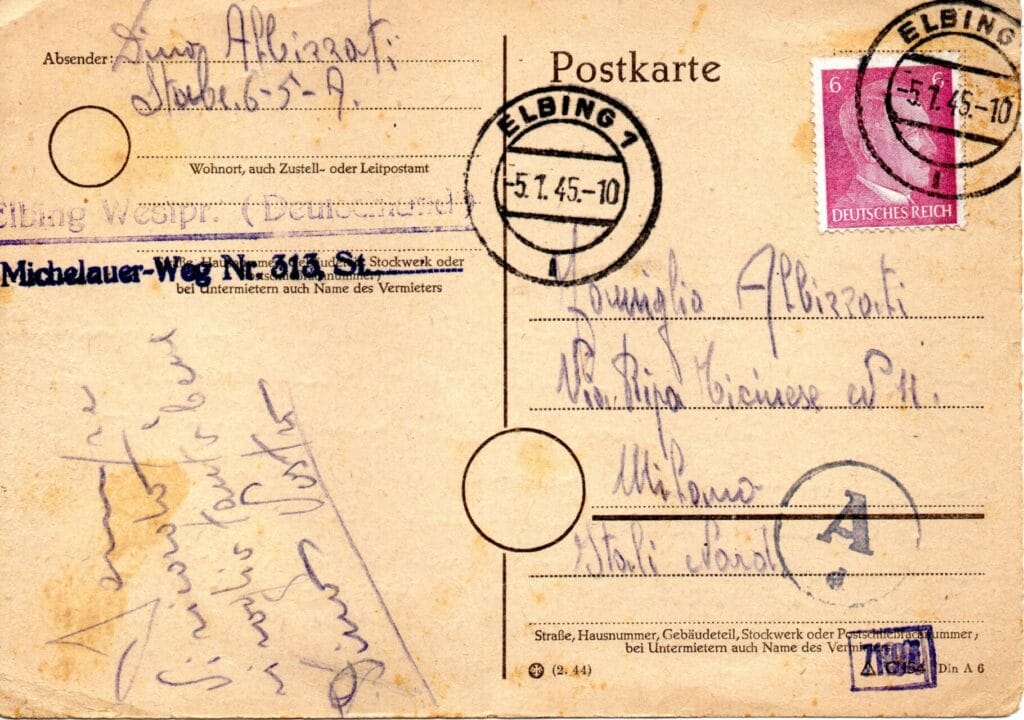 Absender: Dino Albizzati
Stube. 6-5-A.
Wohnort, auch Zustell- oder Leitpostamt
Elbing Westpr. (Deutschland)
Straße, Hausnummer, Gebäudeteil, Stockwerk oder
Michelauer-Weg Nr. 313, St.
bei Untermietern auch Name des Vermieters
Postkarte
ELBING 1
-5.1.45.-10
1
ELBING
-5.1.45.-10
1
6 6
DEUTSCHES REICH
Famiglia Albizzati
Via Ripa Ticinese N 11.
Milano
Itali Nord
A
Straße, Hausnummer, Gebäudeteil, Stockwerk oder Postschließfachnummer;
bei Untermietern auch Name des Vermieters
(2. 44)
Din A 6
tanto bene
Dino